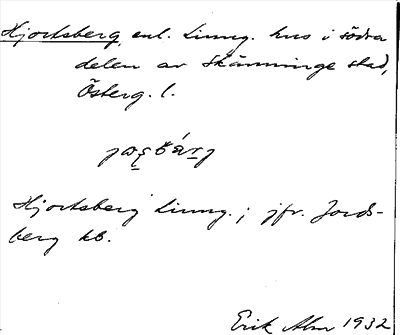 Hjortsberg, enl. Linng. hus i södra
delen av Skänninge stad,
Österg. l.
Hjortsberg Linng.; jfr. Jords-
berg kb.
Erik Alm 1932